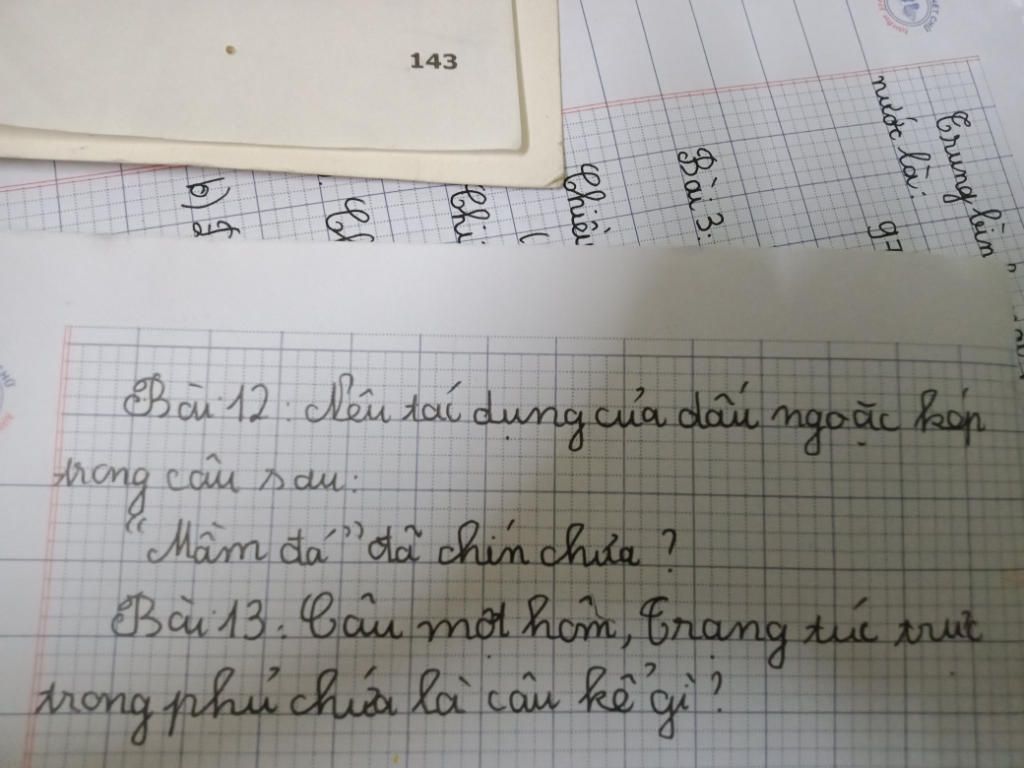 143
Trung bìn
nước là:
97
Bài 3:
Chiều
Chi
b)
Bài 12: Nêu tác dụng của dấu ngoặc kép
trong câu sau:
"Mầm đá" đã chín chưa?
Bài 13: Câu một hôm, Trạng túc trực
trong phủ chúa là câu kể gì?